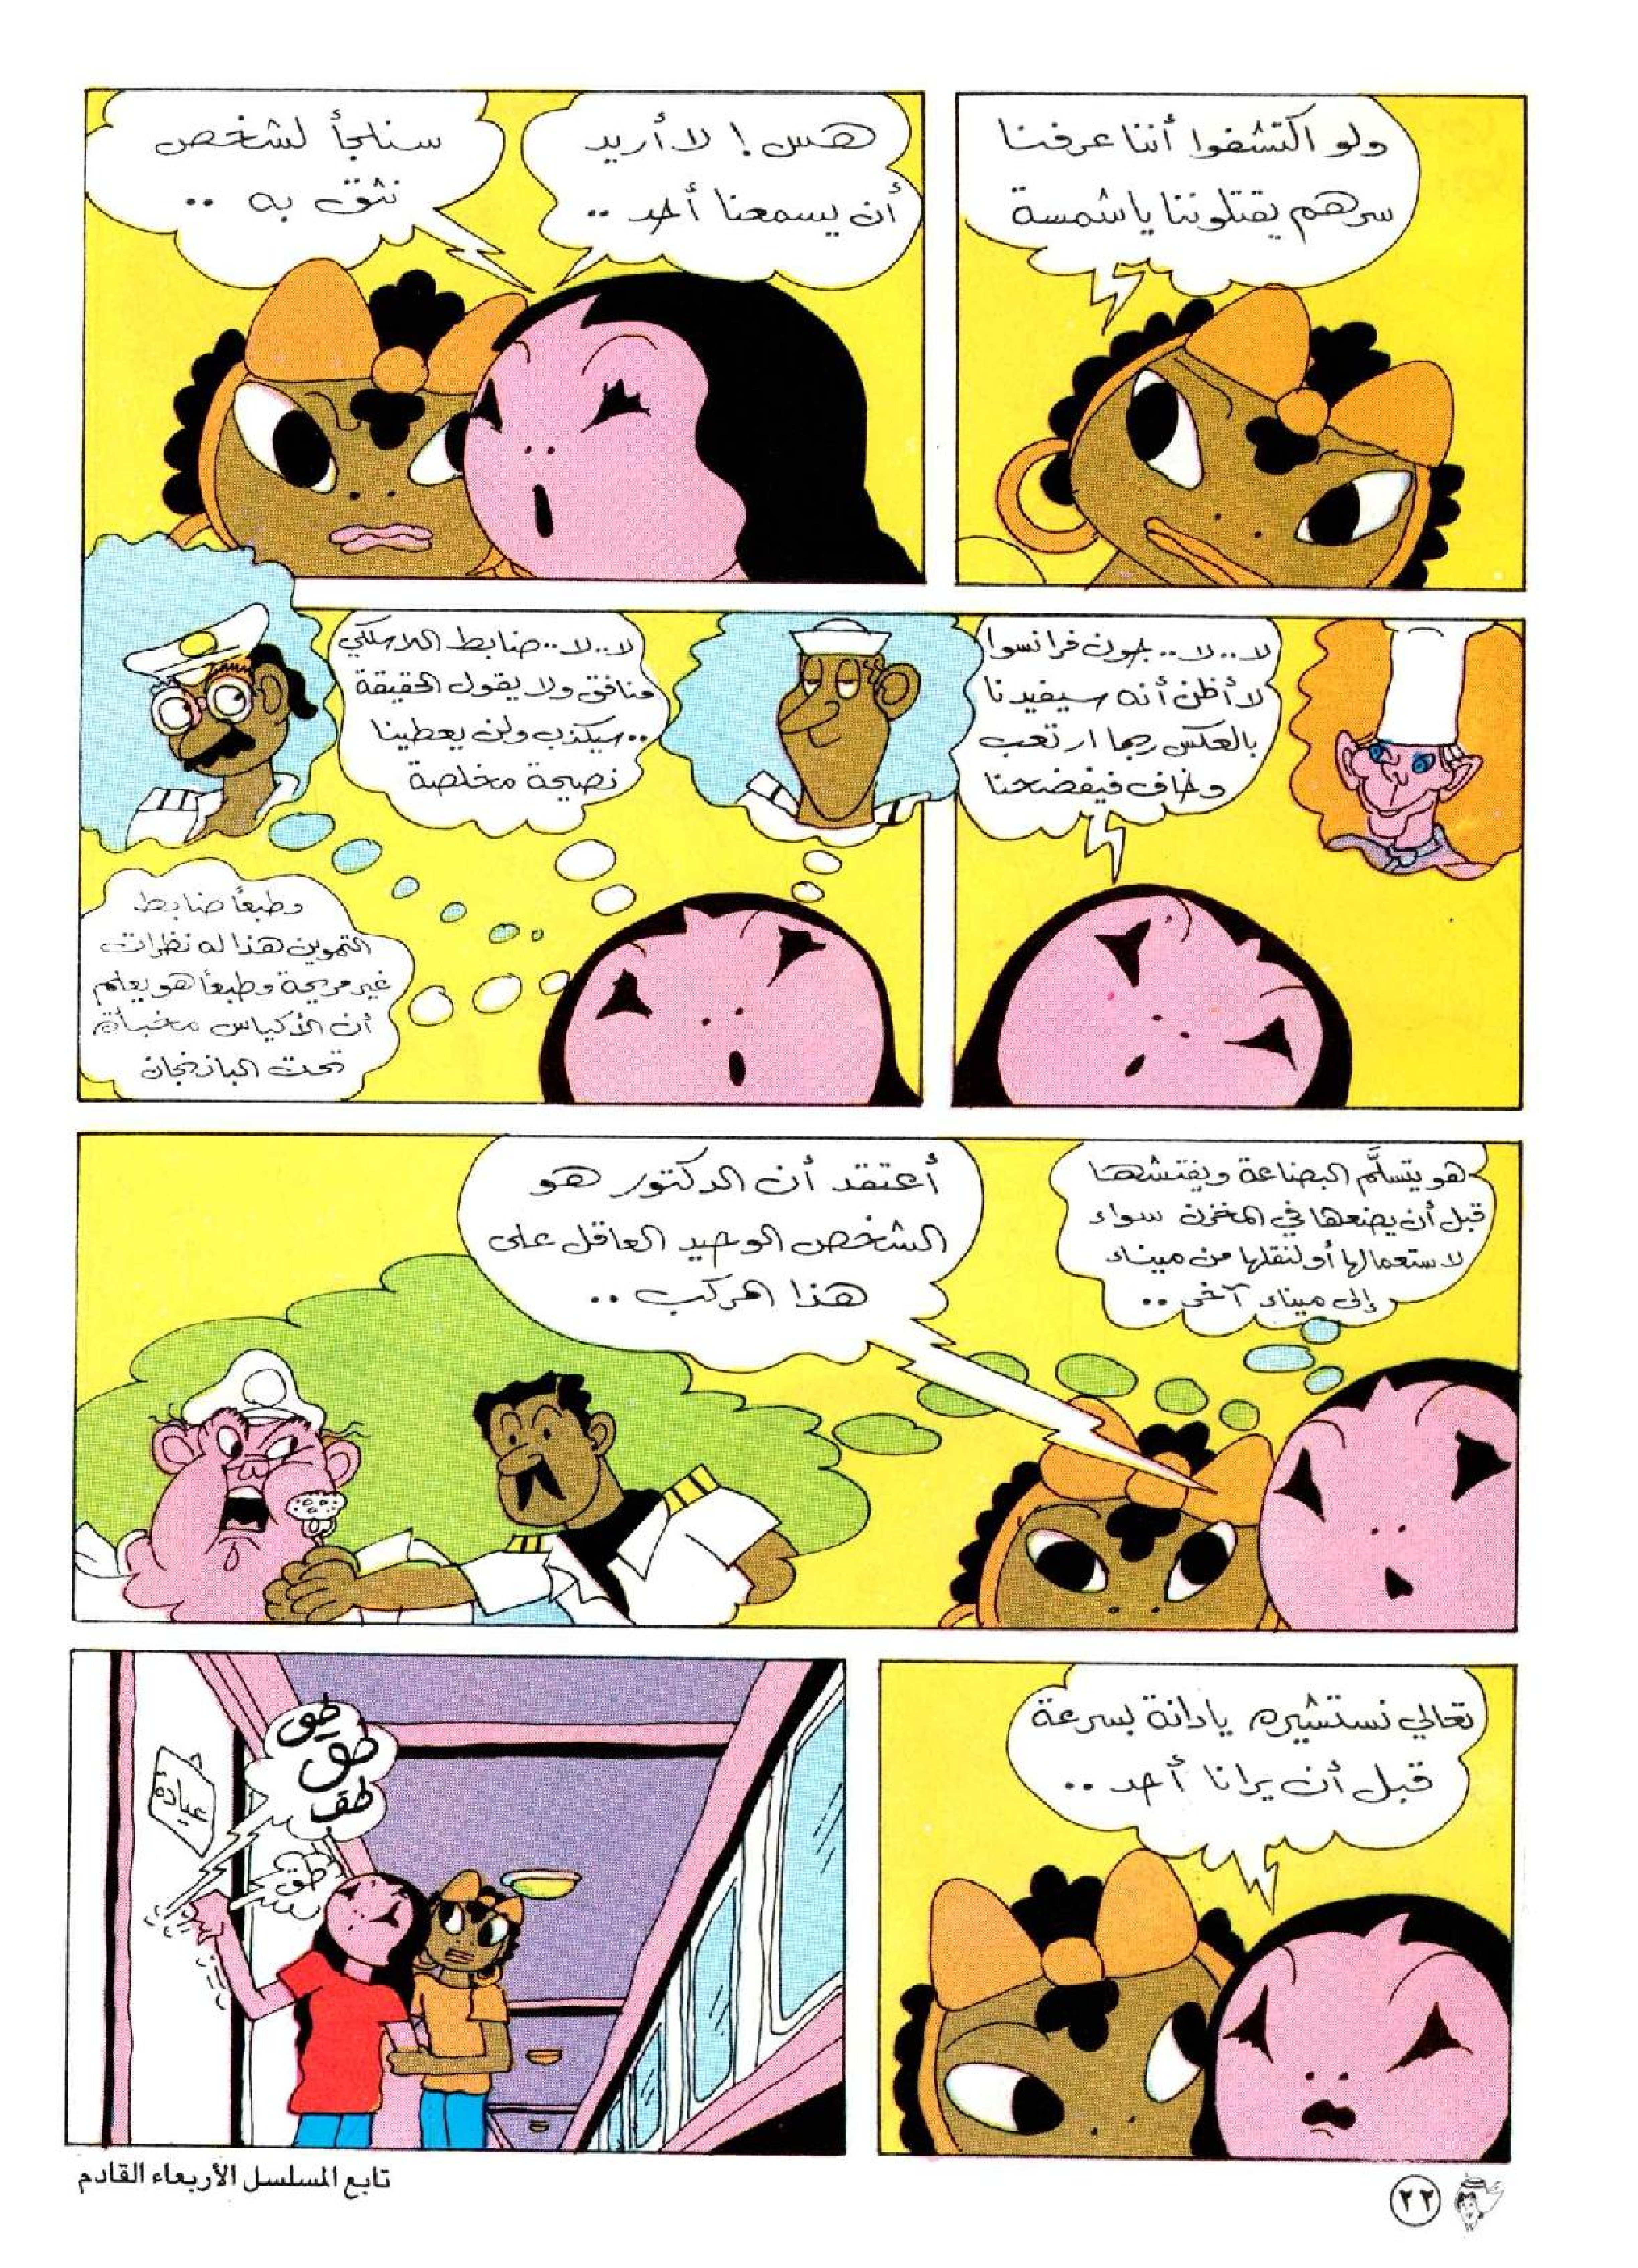 ولو اكتشفوا أننا عرفنا
سرهم يقتلوننا يا شمسة
هس! لا أريد
أن يسمعنا أحد ..
سنلجأ لشخص
نثق به ..
لا .. لا .. جون فرانسوا
لا أظن أنه سيفيدنا
بالعكس ربما ارتعب
وخاف فيفضحنا
لا .. لا .. ضابط اللاسلكي
منافق ولا يقول الحقيقة
.. سيكذب ولن يعطينا
نصيحة مخلصة
وطبعاً ضابط
التموين هذا له نظرات
غير مريحة وطبعاً هو يعلم
أن الأكياس مخبأة
تحت الباذنجان
هو يتسلَّم البضاعة ويفتشها
قبل أن يضعها في المخزن سواء
لاستعمالها أو لنقلها من ميناء
إلى ميناء آخر ..
أعتقد أن الدكتور هو
الشخص الوحيد العاقل على
هذا المركب ..
تعالي نستشيره يا دانة بسرعة
قبل أن يرانا أحد ..
طق
طق
طق
طق
عيادة
تابع المسلسل الأربعاء القادم
٢٢